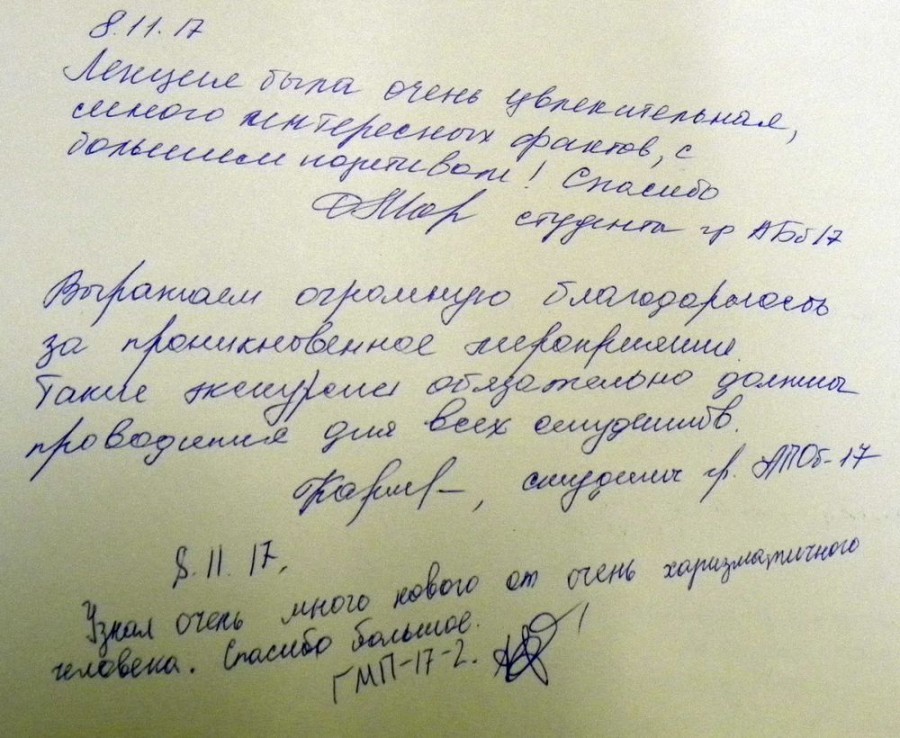 8.11.17
Лекция была очень увлекательная,
много интересных фактов, с
большим позитивом! Спасибо
студента гр АБб17
Выражаем огромную благодарность
за проникновенное мероприятие.
Такие экскурсии обязательно должны
проводиться для всех студентов.
, студент гр. АТОб-17
8.11.17,
Узнал очень много нового от очень харизматичного
человека. Спасибо большое.
ГМП-17-2.